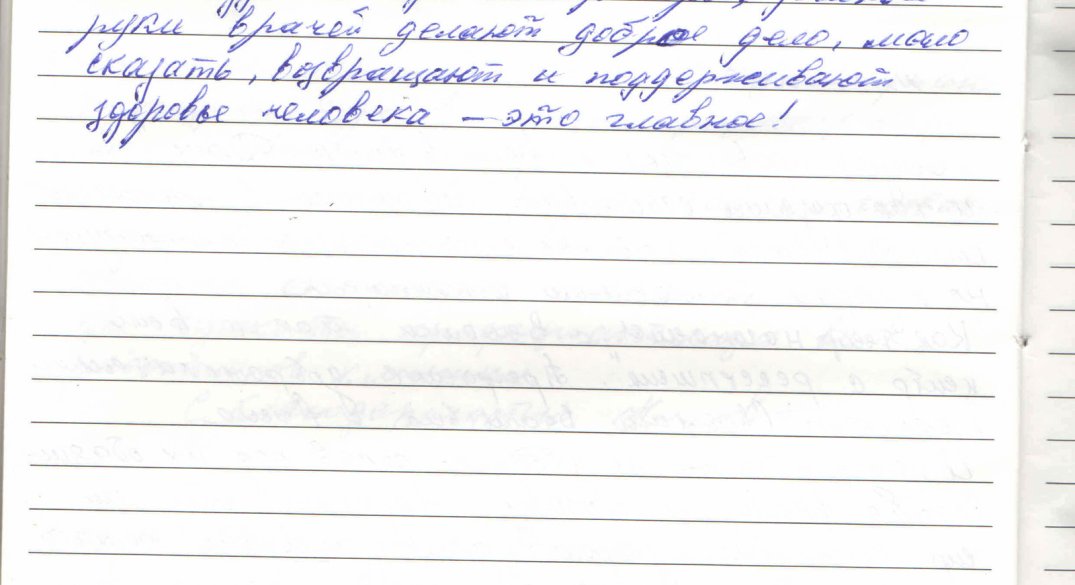 руки врачей делают доброе дело, мало
сказать, возвращают и поддерживают
здоровье человека – это главное!